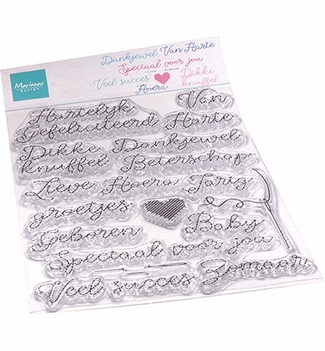 Marianne
DESIGN
Dankjewel Van Harte
Speciaal voor jou
Veel succes Dikke
Hoera knuffel
Hartelijk Van
gefeliciteerd Harte
Dikke Dankjewel
knuffel Beterschap
Lieve Hoera Jarig
groetjes
Geboren Baby
Speciaal voor jou
Veel succes Zomaar